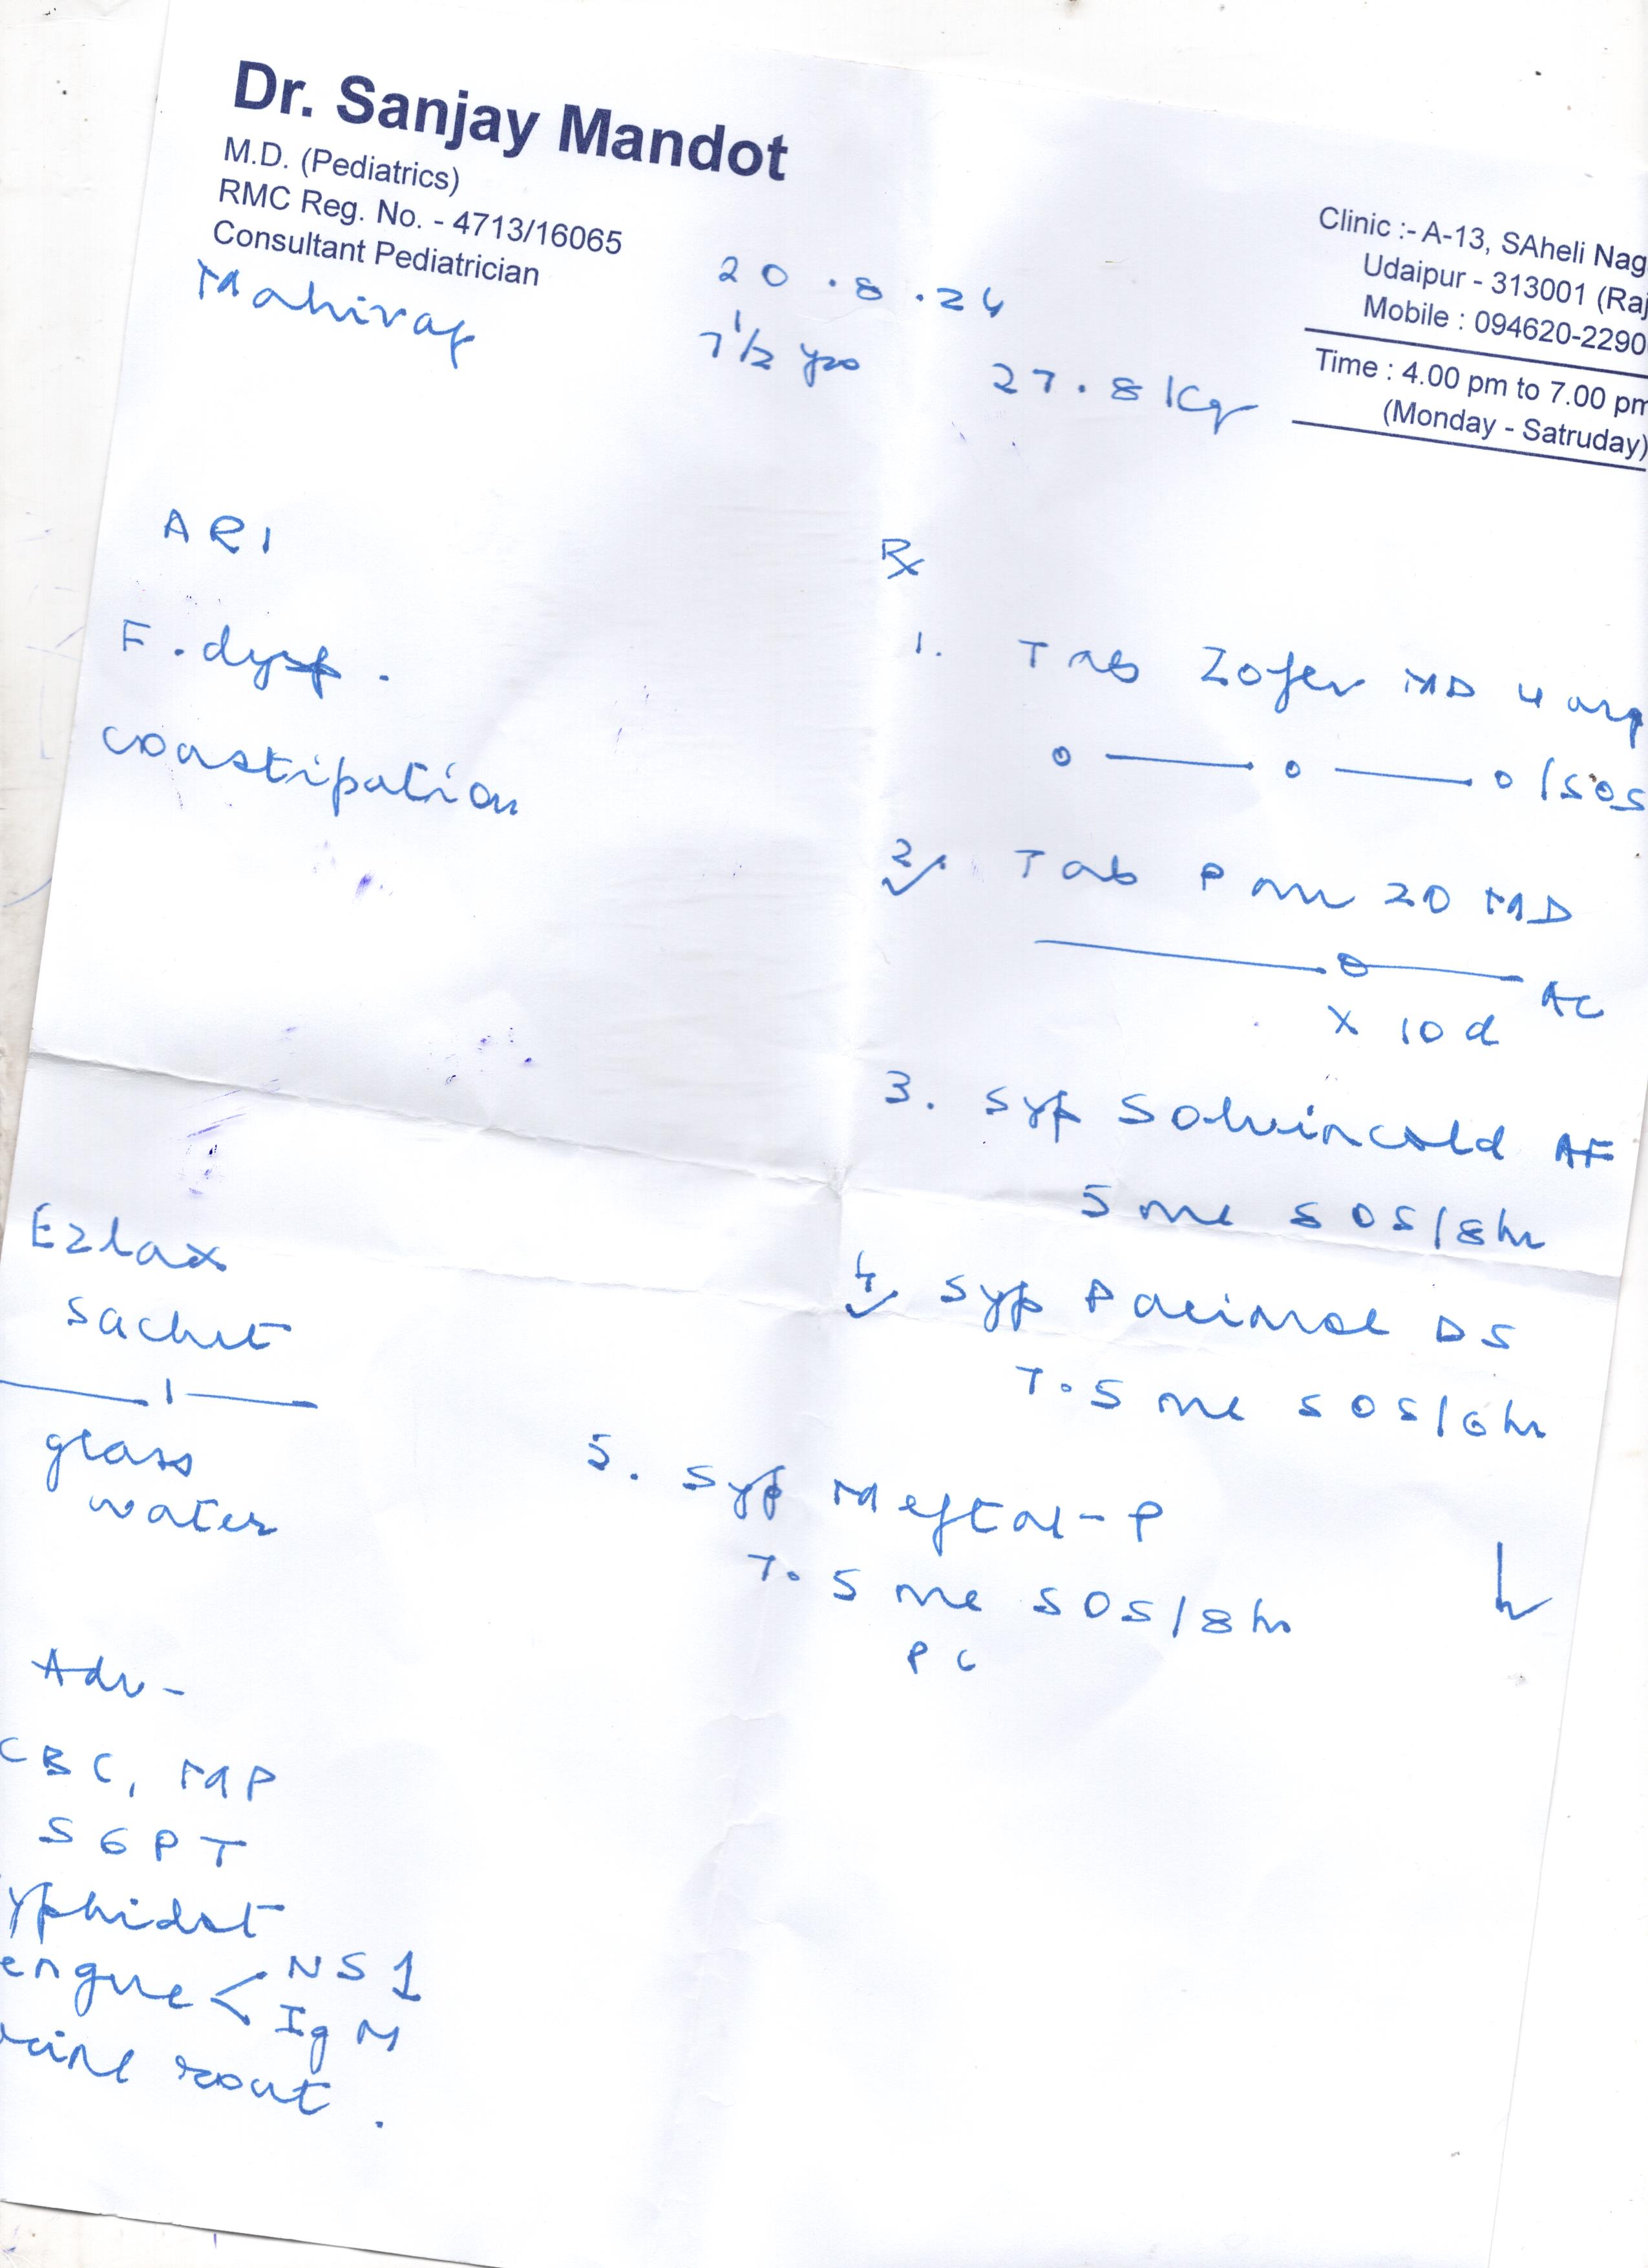 Dr. Sanjay Mandot
M.D. (Pediatrics)
RMC Reg. No. - 4713/16065
Consultant Pediatrician
Clinic :- A-13, SAheli Nag
Udaipur - 313001 (Raj
Mobile : 094620-2290
Time : 4.00 pm to 7.00 pm
(Monday - Satruday)
20.8.24
7 1/2 yrs 27.8 Kg
ARI
F. dysp.
constipation
Rx
1. Tab Zofer MD 4 mg
o — o — o / SOS
2. Tab Pan 20 MD
— o — AC
x 10 d
3. Syp Solvincold AF
5 ml SOS/8hr
4. Syp Pacimol DS
7.5 ml SOS/6hr
5. Syp Meftal-P
7.5 ml SOS/8hr
PC
Ezlax
sachet
— 1 —
glass
water
Adv -
CBC, MP
SGPT
yphidot
engue < NS1
IgM
rine rout.